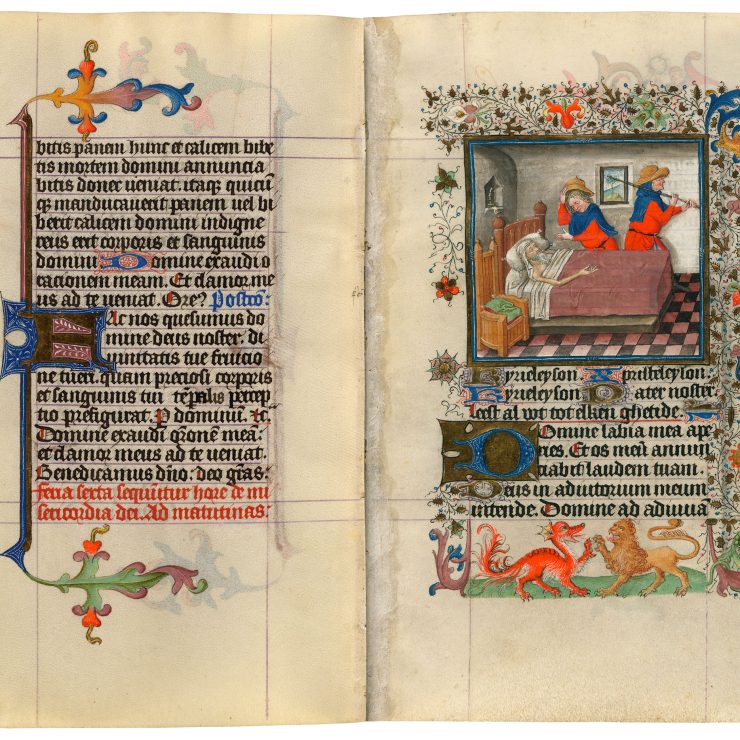 bitis panem hunc et calicem bibe
tis mortem domini annuncia
bitis donec veniat. itaq; quicun
q; manducaverit panem vel bi
berit calicem domini indigne
reus erit corporis et sanguinis
domini Domine exaudi o
racionem meam. Et clamor me
us ad te veniat. Ore? Postco:
Fac nos quesumus do
mine deus noster. di
vinitatis tue fruicio
ne tueri. quam preciosi corporis
et sanguinis tui te͂palis percep
tio prefigurat. P dominu͂. &c.
Domine exaudi or̃onem mea͂:
et clamor meus ad te veniat.
Benedicamus dn̄o: deo gr̄as:
feria sexta sequu͂tur hore de mi
sericordia dei. Ad matutinas:
Kyrieleyson Christeleyson:
Kyrieleyson Pater noster.
Leest al wt tot elken ghetide.
Domine labia mea ape
ries. Et os meu͂ annun
ciabit laudem tuam.
Deus in adiutorium meum
intende. Domine ad adiuva